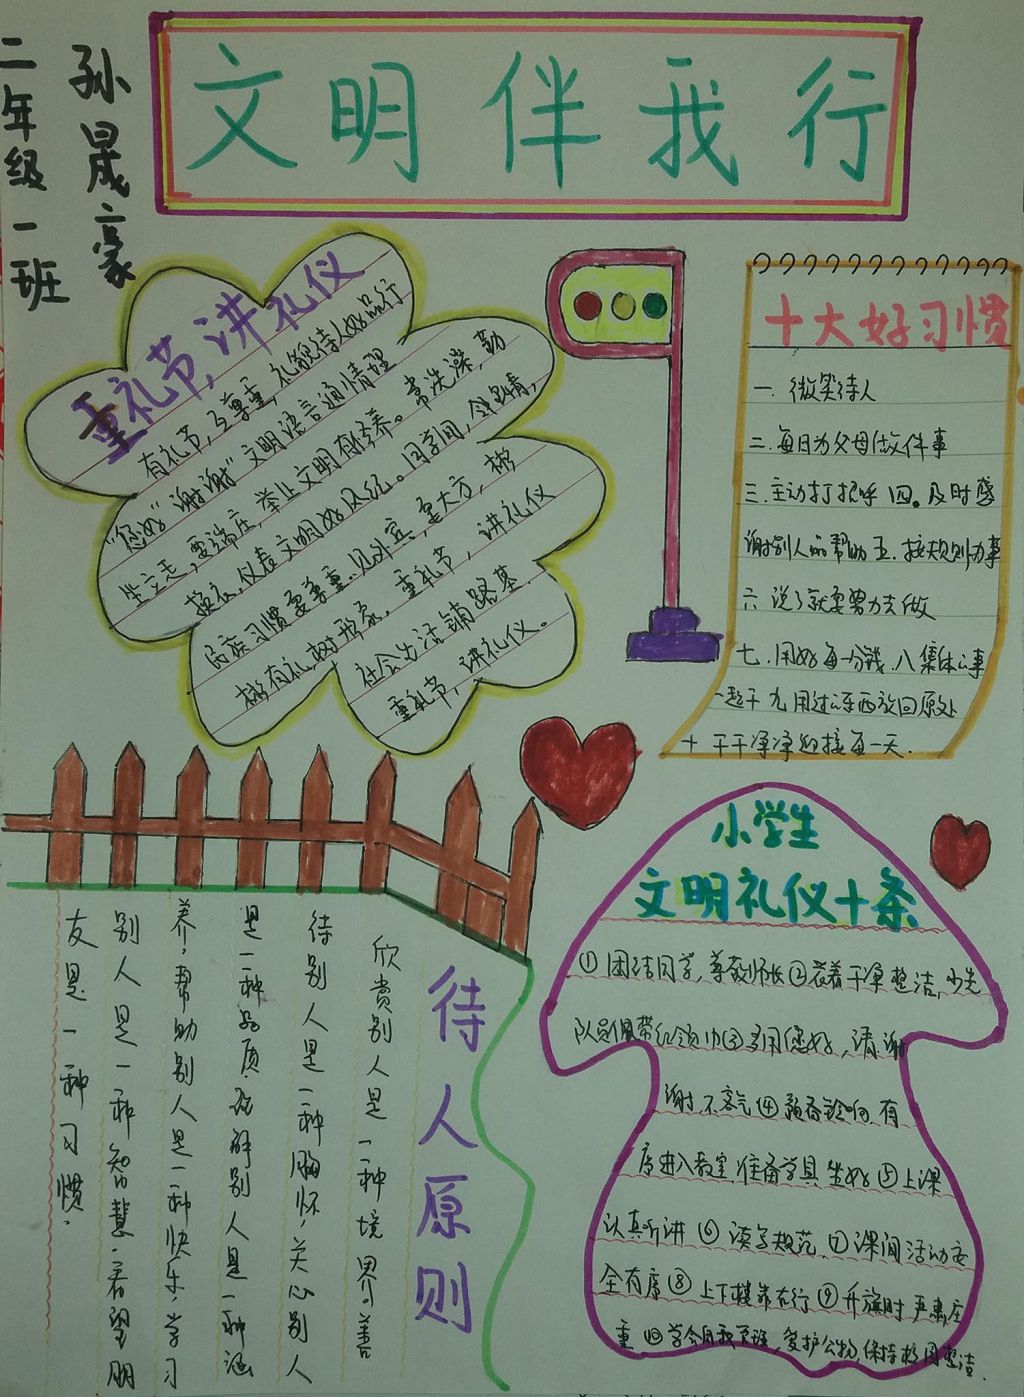 文明伴我行
孙晟豪
二年级一班
重礼节,讲礼仪
有礼节,互尊重,礼貌待人好品行
"您好""谢谢"文明语言通情理
坐立走,要端庄,举止文明有修养。常洗澡,勤
换衣,仪表文明好风纪。同学间,邻里情,
民族习惯要尊重.见外宾,要大方,彬
彬有礼树形象。重礼节,讲礼仪
社会生活铺路基.
重礼节,讲礼仪。
十大好习惯
一.微笑待人
二.每日为父母做件事
三.主动打招呼 四。及时感
谢别人的帮助 五.按规则办事
六 说了就要努力去做
七.用好每一分钱.八集体的事
一起干 九 用过的东西放回原处
十 干干净净迎接每一天.
待人原则
欣赏别人是一种境界。善
待别人是一种胸怀,关心别人
是一种品质.理解别人是一种涵
养,帮助别人是一种快乐.学习
别人是一种智慧.看望朋
友是一种习惯.
小学生
文明礼仪十条
①团结同学,尊敬师长②衣着干净整洁,少先
队员佩带红领巾③多用您好,请.谢
谢.不客气④预备铃响.有
序进入教室.准备学具.坐好⑤上课
认真听讲⑥读写规范.⑦课间活动安
全有序⑧上下楼靠右行⑨升旗时严肃庄
重.⑩学会自我管理,爱护公物,保持校园整洁.